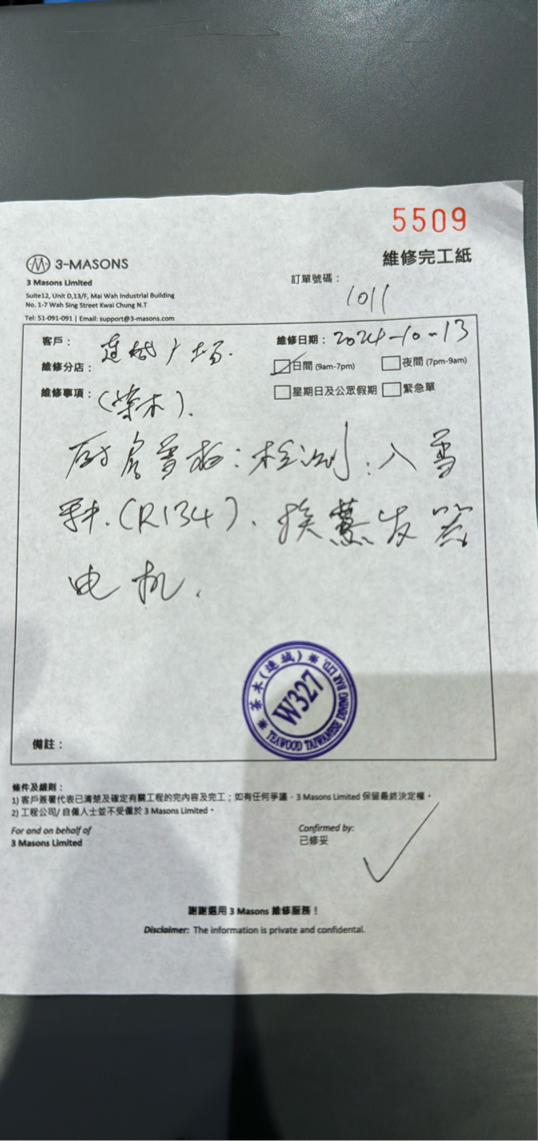 5509
維修完工紙
3-MASONS
3 Masons Limited
Suite12, Unit D,13/F, Mai Wah Industrial Building
No. 1-7 Wah Sing Street Kwai Chung N.T
Tel: 51-091-091 | Email: support@3-masons.com
訂單號碼：
1011
客戶： 連城广场.
維修日期： 2024-10-13
維修分店：
日間 (9am-7pm) 夜間 (7pm-9am)
星期日及公眾假期 緊急單
維修事項： (茶木).
厨房雪柜：检测：入雪
种.(R134)、换蒸发器
电机.
茶木(連城)
W327
TEAWOOD TAIWANESE DINING BAR LTD
備註：
條件及細則：
1) 客戶簽署代表已清楚及確定有關工程的完內容及完工；如有任何爭議，3 Masons Limited 保留最終決定權。
2) 工程公司/自僱人士並不受僱於 3 Masons Limited。
For and on behalf of
3 Masons Limited
Confirmed by:
已修妥
謝謝選用 3 Masons 維修服務！
Disclaimer: The information is private and confidental.